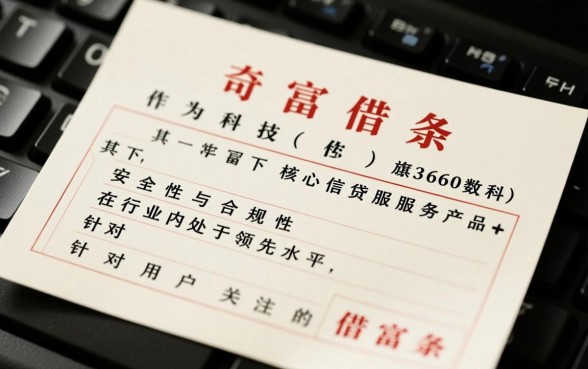 奇富借条
作为科技( )旗3660数科)
其一牢富下 核心信贷服服务产品+
其下,
安全性与合规性
在行业内处于领先水平,
针对
针对用户 关注的
借富条